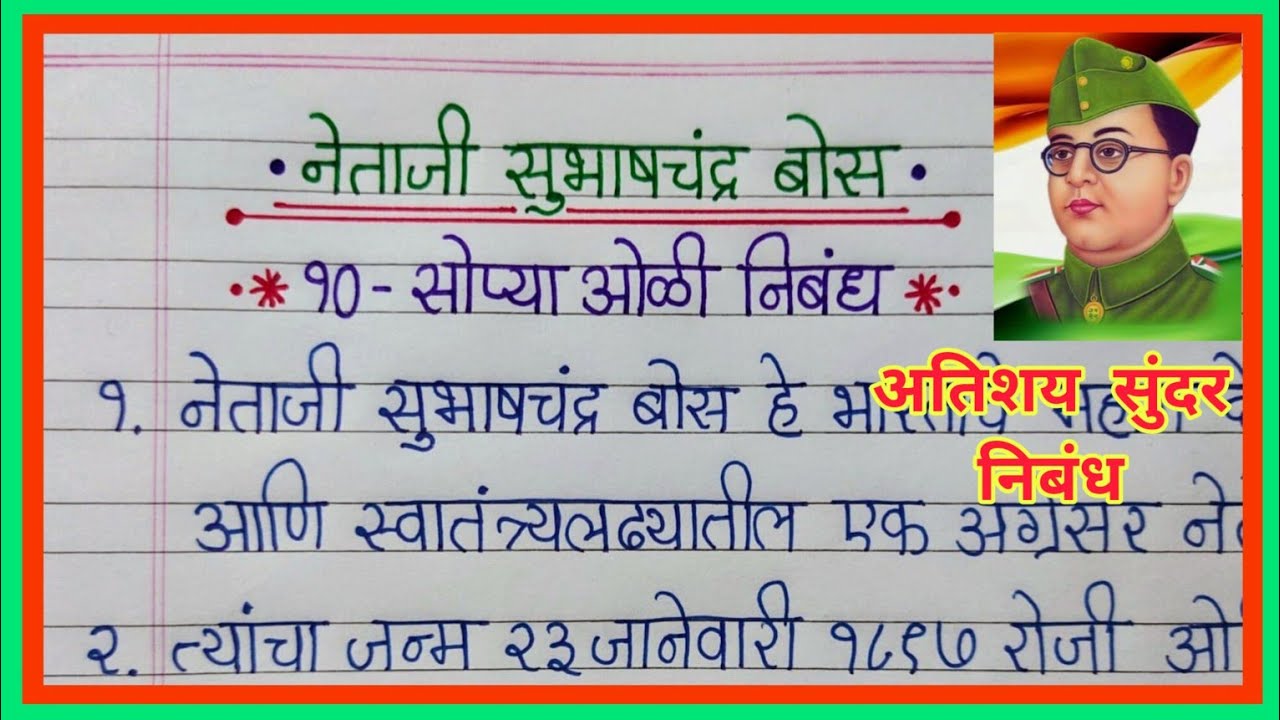 • नेताजी सुभाषचंद्र बोस •
* १० - सोप्या ओळी निबंध *
१. नेताजी सुभाषचंद्र बोस हे
आणि स्वातंत्र्यलढ्यातील एक अग्रेसर
२. त्यांचा जन्म २३ जानेवारी १८९७ रोजी
अतिशय सुंदर
निबंध